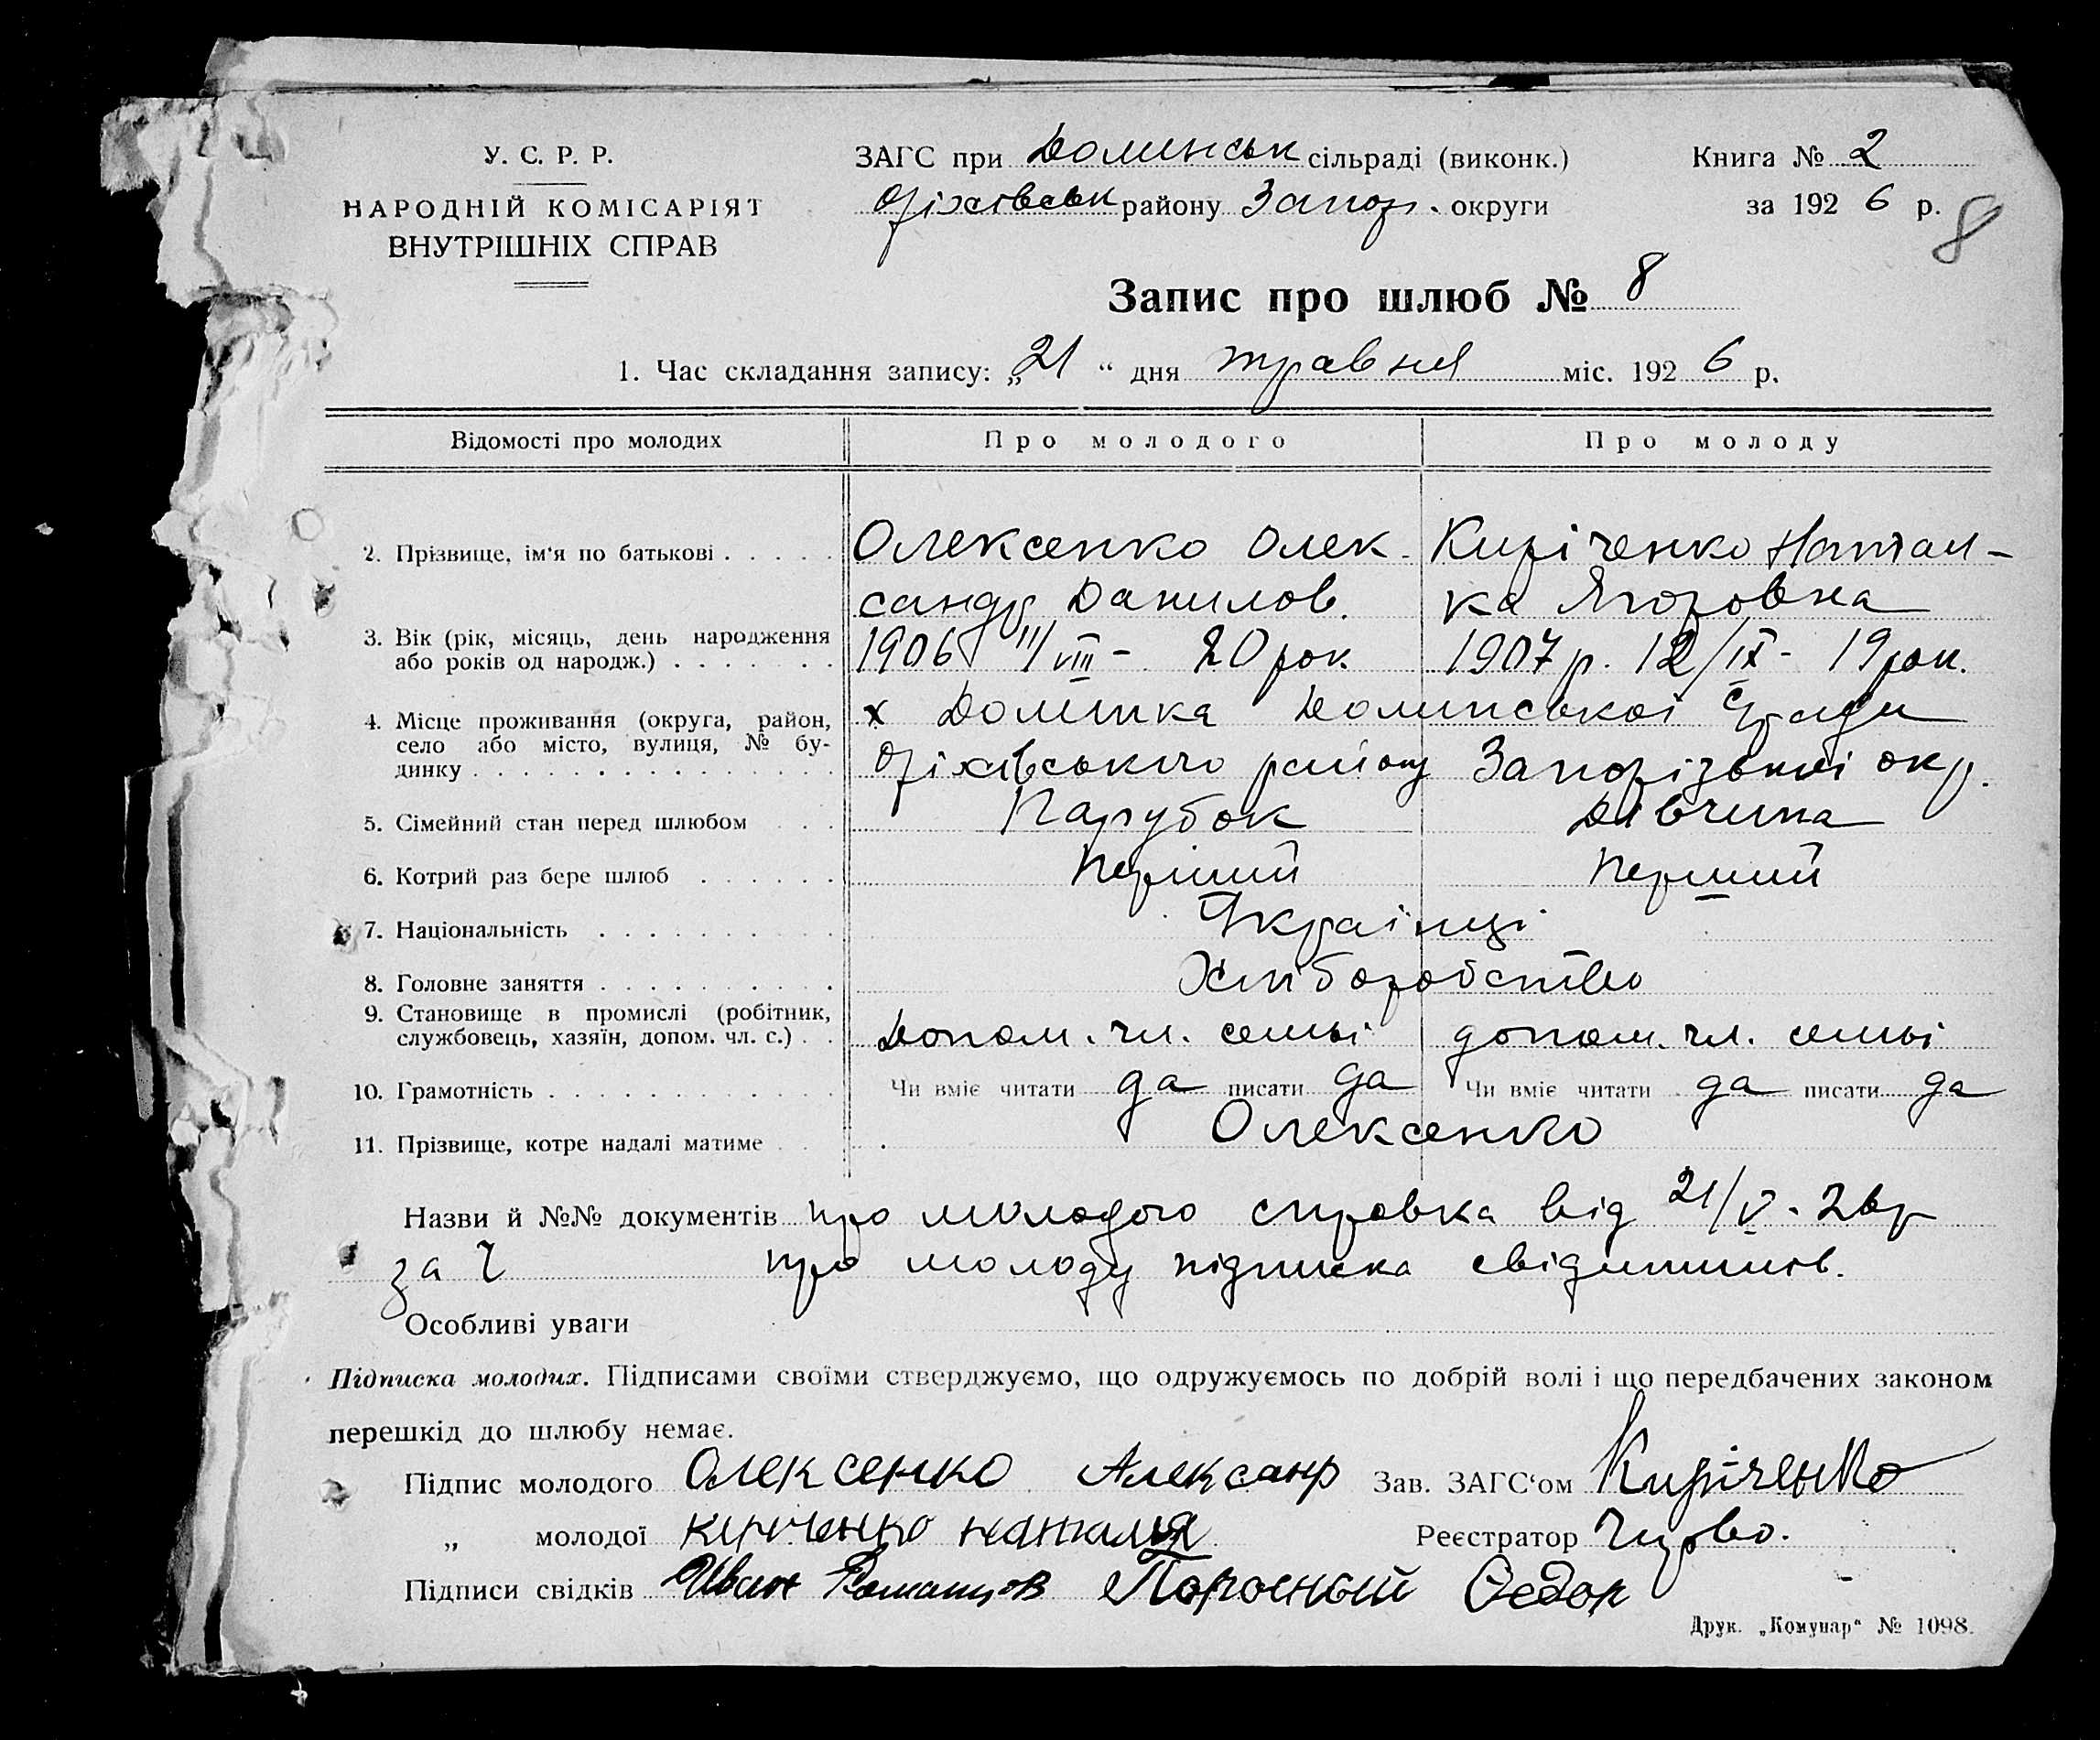 У. С. Р. Р.
НАРОДНІЙ КОМІСАРІЯТ
ВНУТРІШНІХ СПРАВ
ЗАГС при Долинськ сільраді (виконк.)
Оріхівськ району Запор. округи
Книга № 2
за 1926 р.
8
Запис про шлюб № 8
1. Час складання запису: „21“ дня травня міс. 1926 р.
Відомості про молодих Про молодого Про молоду
2. Прізвище, ім‘я по батькові Олексенко Олек- Киріченко Натал-
сандр Данилов. ка Ягоровна
3. Вік (рік, місяць, день народження
або років од народж.) 1906 11/VIII - 20 рок 1907 р. 12/IX - 19 рок.
4. Місце проживання (округа, район,
село або місто, вулиця, № бу-
динку х Долинка Долинської С/ради
Оріхівського району Запорізької окр.
5. Сімейний стан перед шлюбом Парубок Дівчина
6. Котрий раз бере шлюб Перший Перший
7. Національність Українці
8. Головне заняття Хліборобство
9. Становище в промислі (робітник,
службовець, хазяїн, допом. чл. с.) Допом. чл. семьі допом. чл. семьі
10. Грамотність Чи вміє читати да писати да Чи вміє читати да писати да
11. Прізвище, котре надалі матиме Олексенко
Назви й №№ документів про молодого справка від 21/V. 26р
за Ч про молоду підписка
Особливі уваги
Підписка молодих. Підписами своїми стверджуємо, що одружуємось по добрій волі і що передбачених законом
перешкід до шлюбу немає.
Підпис молодого Олексенко Алексанр Зав. ЗАГС‘ом Киріченко
„ молодої Наталія Реєстратор
Підписи свідків Иван Федор
Друк. „Комунар“ № 1098.